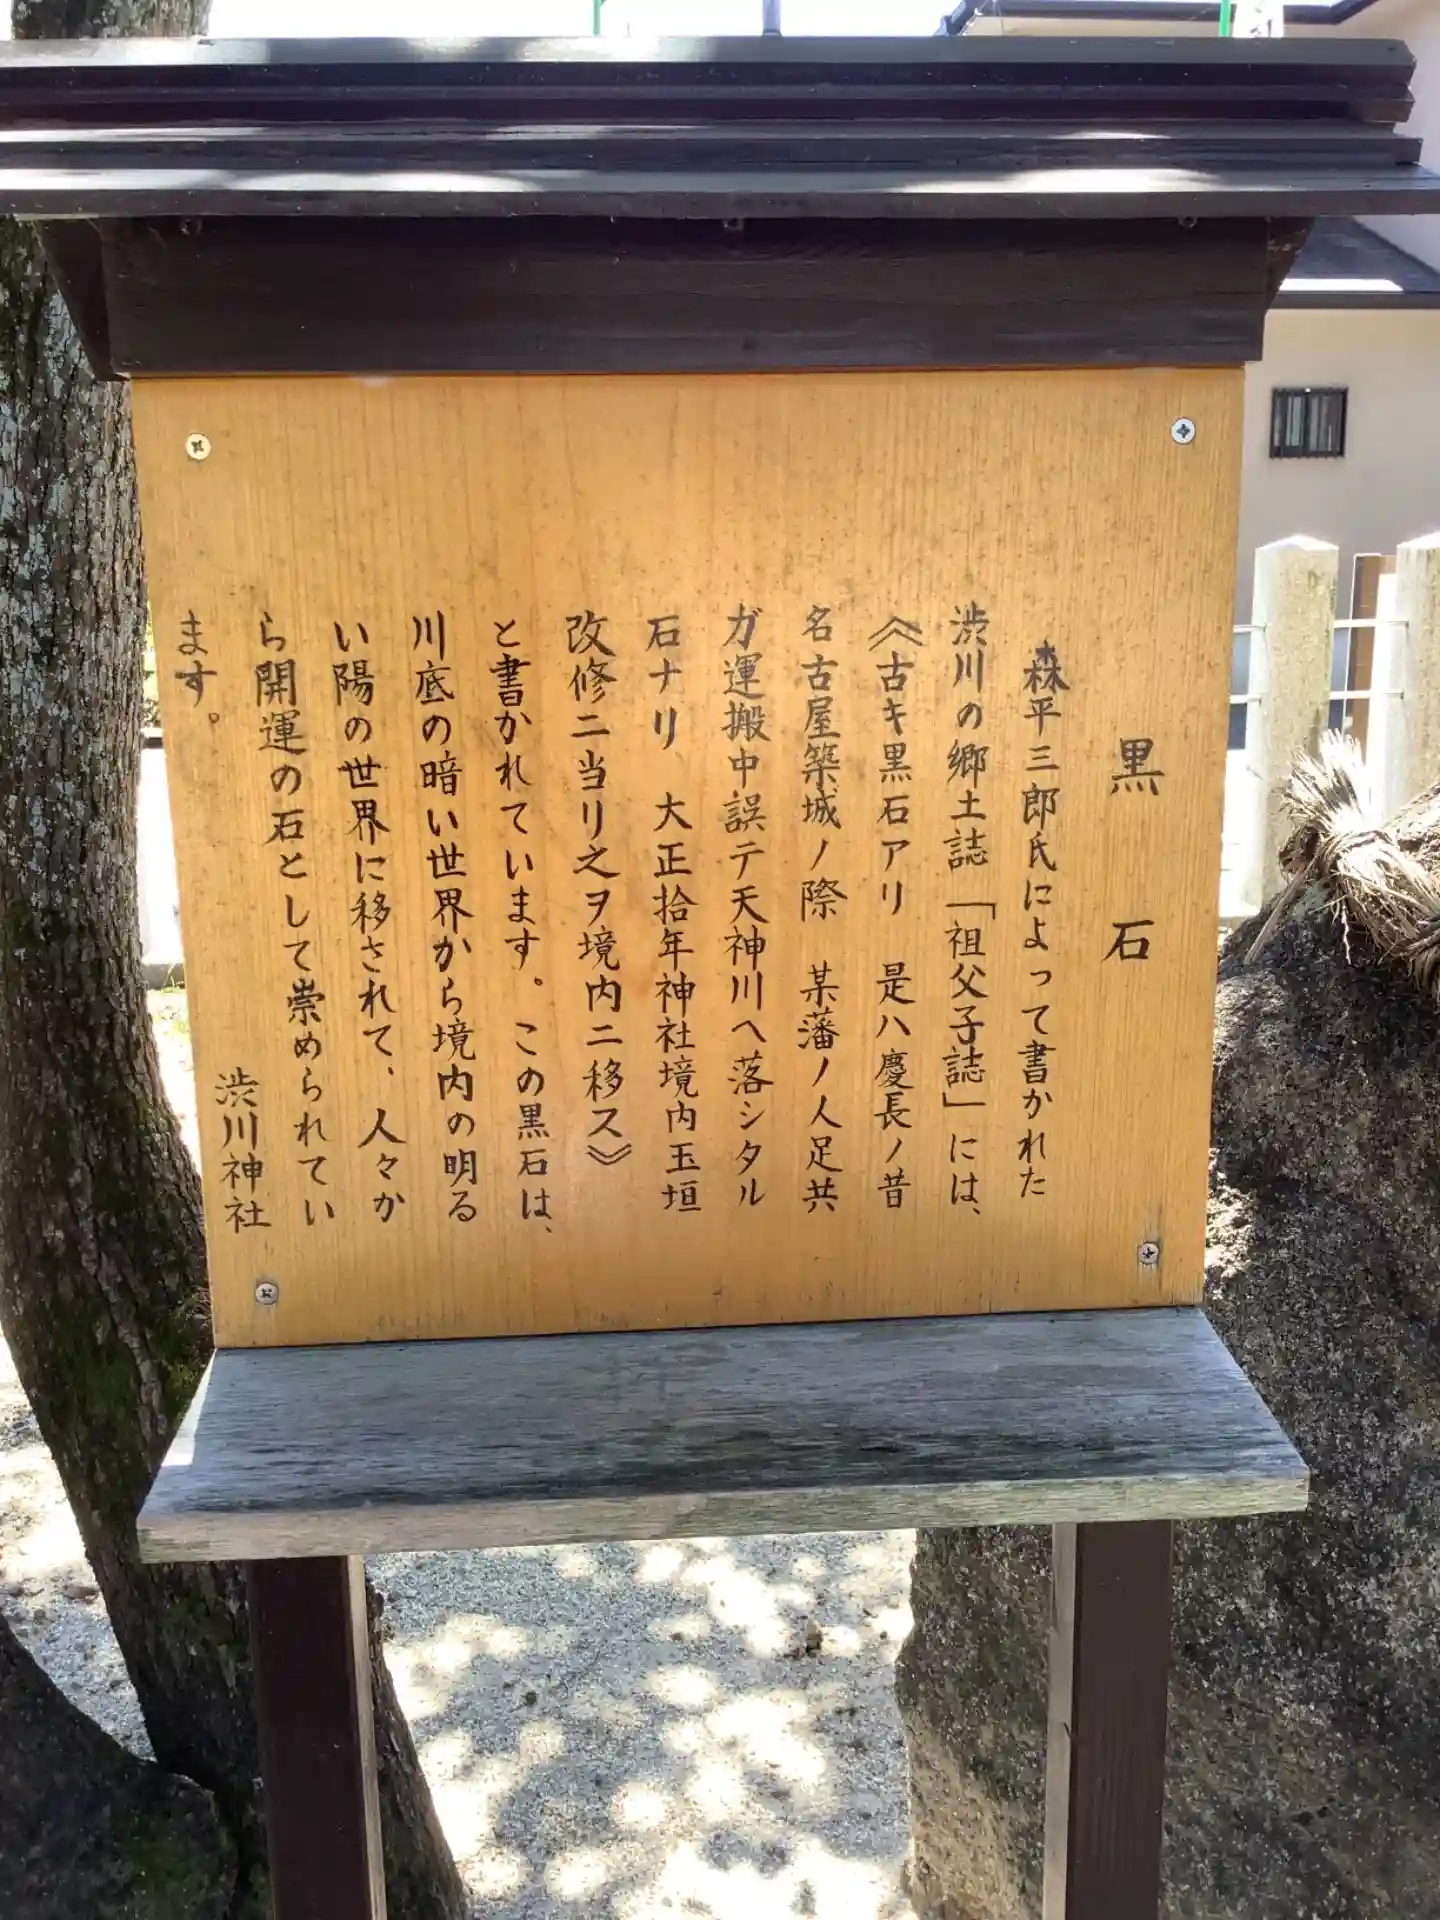 黒石
森平三郎氏によって書かれた
渋川の郷土誌「祖父子誌」には、
《古キ黒石アリ　是ハ慶長ノ昔
名古屋築城ノ際　某藩ノ人足共
ガ運搬中誤テ天神川ヘ落シタル
石ナリ　大正拾年神社境内玉垣
改修ニ当リ之ヲ境内ニ移ス》
と書かれています。この黒石は、
川底の暗い世界から境内の明る
い陽の世界に移されて、人々か
ら開運の石として崇められてい
ます。
渋川神社